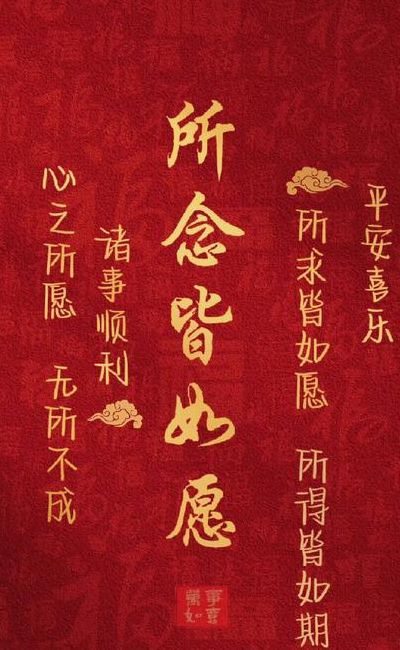 平安喜乐
所求皆如愿 所得皆如期
所念皆如愿
诸事顺利
心之所愿 无所不成